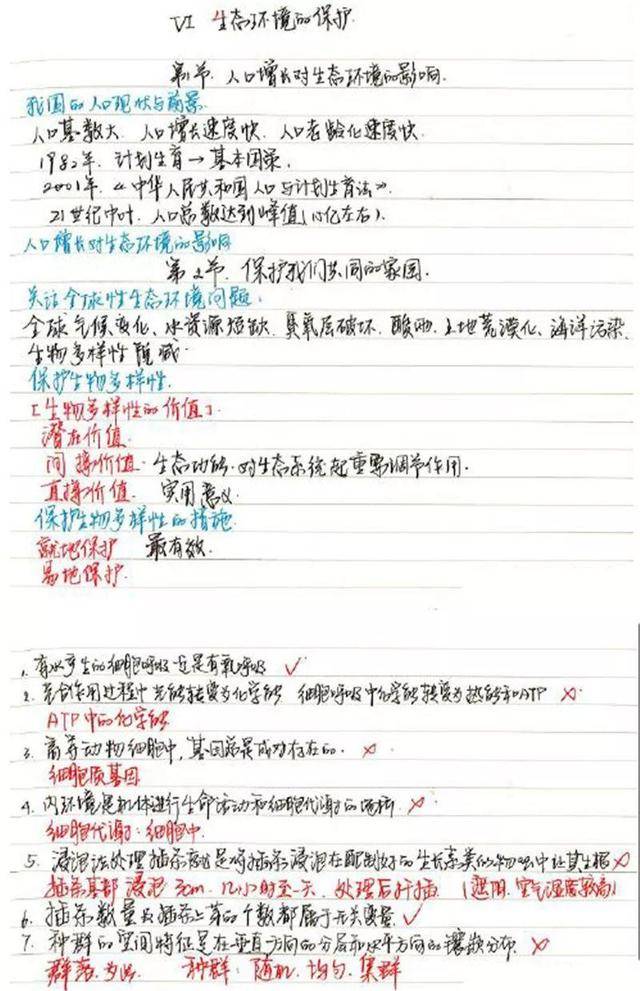 VI 生态环境的保护
第1节. 人口增长对生态环境的影响.
我国的人口现状与前景
人口基数大. 人口增长速度快. 人口老龄化速度快.
1982年. 计划生育→基本国策.
2001年.《中华人民共和国人口与计划生育法》.
21世纪中叶. 人口总数达到峰值(15亿左右).
人口增长对生态环境的影响
第2节. 保护我们共同的家园.
关注全球性生态环境问题:
全球气候变化、水资源短缺. 臭氧层破坏. 酸雨. 土地荒漠化、海洋污染.
生物多样性锐减.
保护生物多样性.
[生物多样性的价值].
潜在价值.
间接价值. 生态功能. 对生态系统起重要调节作用.
直接价值. 实用意义.
保护生物多样性的措施.
就地保护 最有效.
易地保护.
1. 有水产生的细胞呼吸一定是有氧呼吸 ✓
2. 光合作用过程中光能转变为化学能. 细胞呼吸中化学能转变为热能和ATP ×
ATP中的化学能
3. 高等动物细胞中, 基因总是成对存在的. ×
细胞质基因
4. 内环境是机体进行生命活动和细胞代谢的场所 ×
细胞代谢:细胞中.
5. 浸泡法处理插条就是将插条浸泡在配制好的生长素类似物中让其生根 ×
插条基部 浸泡 3cm. 几小时至一天. 处理后扦插. (遮阴. 空气湿度较高)
6. 插条数量及插条上芽的个数都属于无关变量. ✓
7. 种群的空间特征是在垂直方向的分层和水平方向的镶嵌分布. ×
群落 种群: 随机. 均匀. 集群